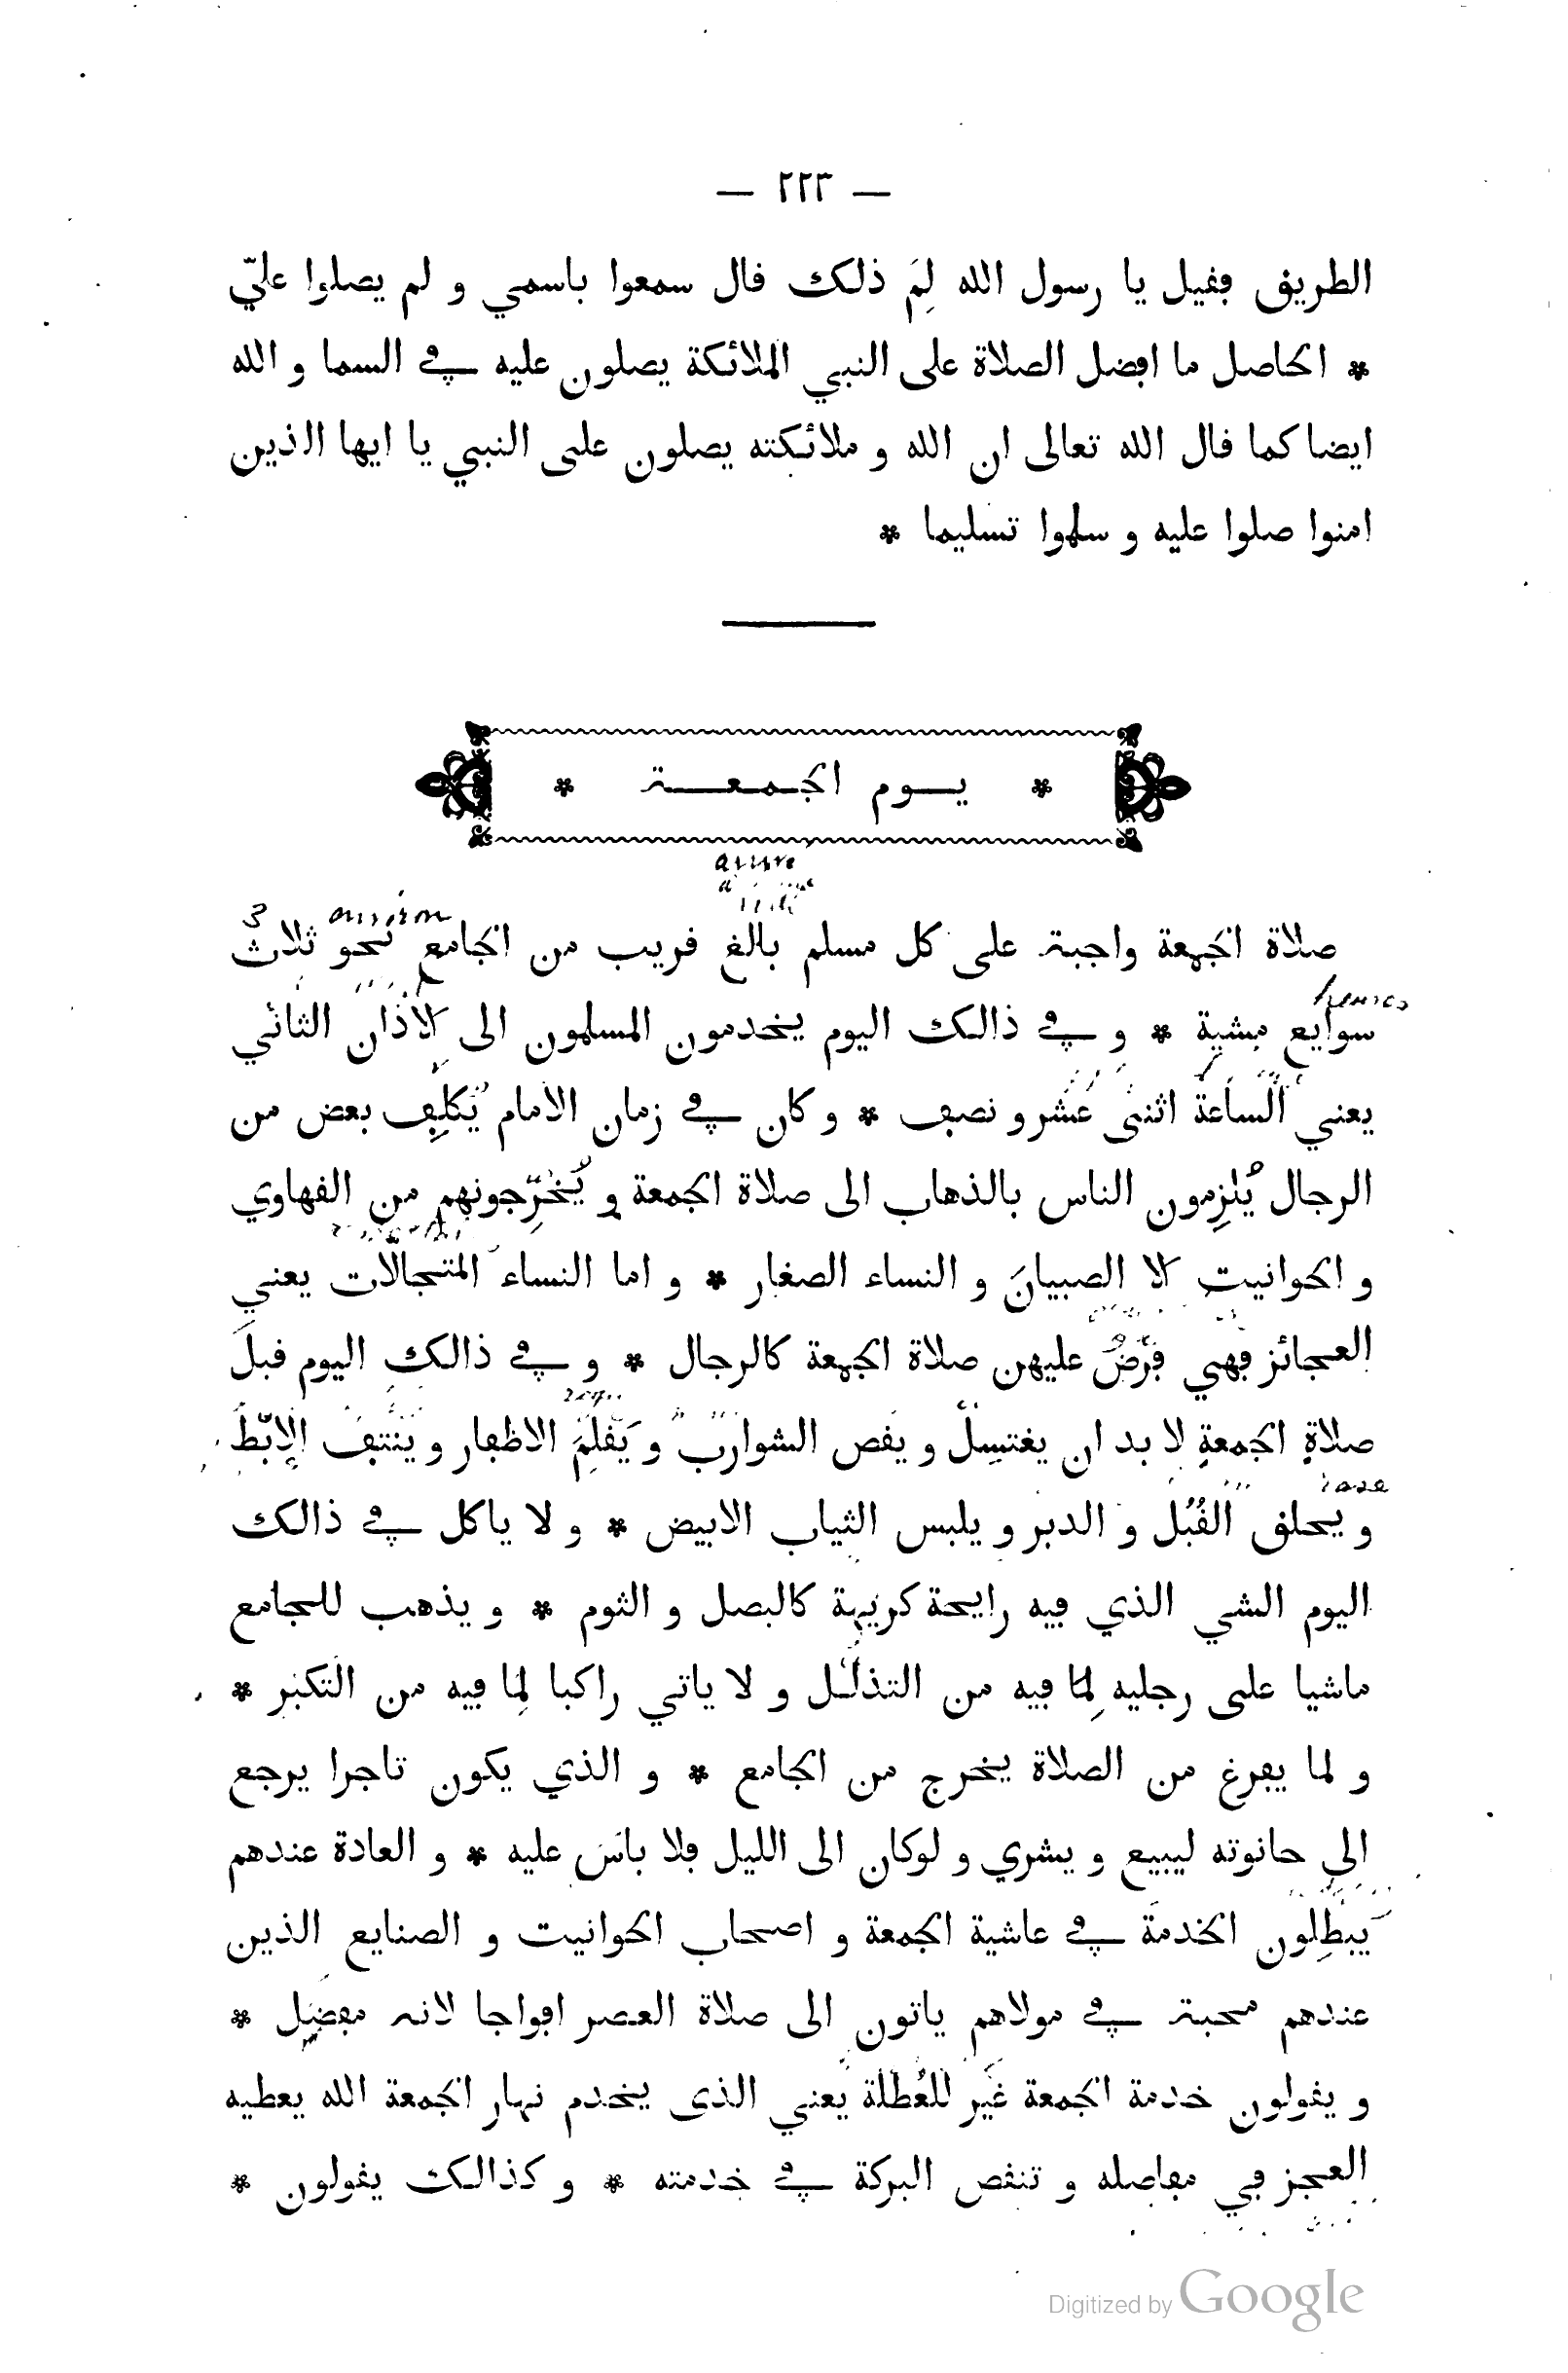 — ٢٢٣ —
الطريق فقيل يا رسول الله لِمَ ذلك قال سمعوا باسمي و لم يصلوا عليّ
* الحاصل ما افضل الصلاة على النبي الملائكة يصلون عليه في السما و الله
ايضا كما قال الله تعالى ان الله و ملائكته يصلون على النبي يا ايها الذين
امنوا صلوا عليه و سلموا تسليما *
* يوم الجمعة *
3 environ
صلاة الجمعة واجبة على كل مسلم بالغ قريب من الجامع نحو ثلاث
heures
سوايع مشية * و في ذالك اليوم يخدمون المسلمون الى الاذان الثاني
يعني الساعة اثنى عشر و نصف * و كان في زمان الامام يُكلِف بعض من
الرجال يُلزِمون الناس بالذهاب الى صلاة الجمعة و يُخَرِّجونهم من القهاوي
و الحوانيت الا الصبيان و النساء الصغار * و اما النساء المتجالّات يعني
العجائز فهي فرضٌ عليهن صلاة الجمعة كالرجال * و في ذالك اليوم قبل
صلاةِ الجمعةِ لا بد ان يغتسِل و يقص الشوارب و يَقلِّمَ الاظفار و ينتف الإبْط
و يحلق القُبُل و الدبر و يلبس الثياب الابيض * و لا ياكل في ذالك
اليوم الشي الذي فيه رايحة كريهة كالبصل و الثوم * و يذهب للجامع
ماشيا على رجليه لِما فيه من التذلل و لا ياتي راكبا لِما فيه من التكبر *
و لما يفرغ من الصلاة يخرج من الجامع * و الذي يكون تاجرا يرجع
الى حانوته ليبيع و يشري و لوكان الى الليل فلا باس عليه * و العادة عندهم
يبطِلون الخدمة في عاشية الجمعة و اصحاب الحوانيت و الصنايع الذين
عندهم محبة في مولاهم ياتون الى صلاة العصر افواجا لانه مفضل *
و يقولون خدمة الجمعة غير للعُطلة يعني الذى يخدم نهار الجمعة الله يعطيه
العجز في مفاصله و تنقص البركة في خدمته * و كذالك يقولون *
Digitized by Google